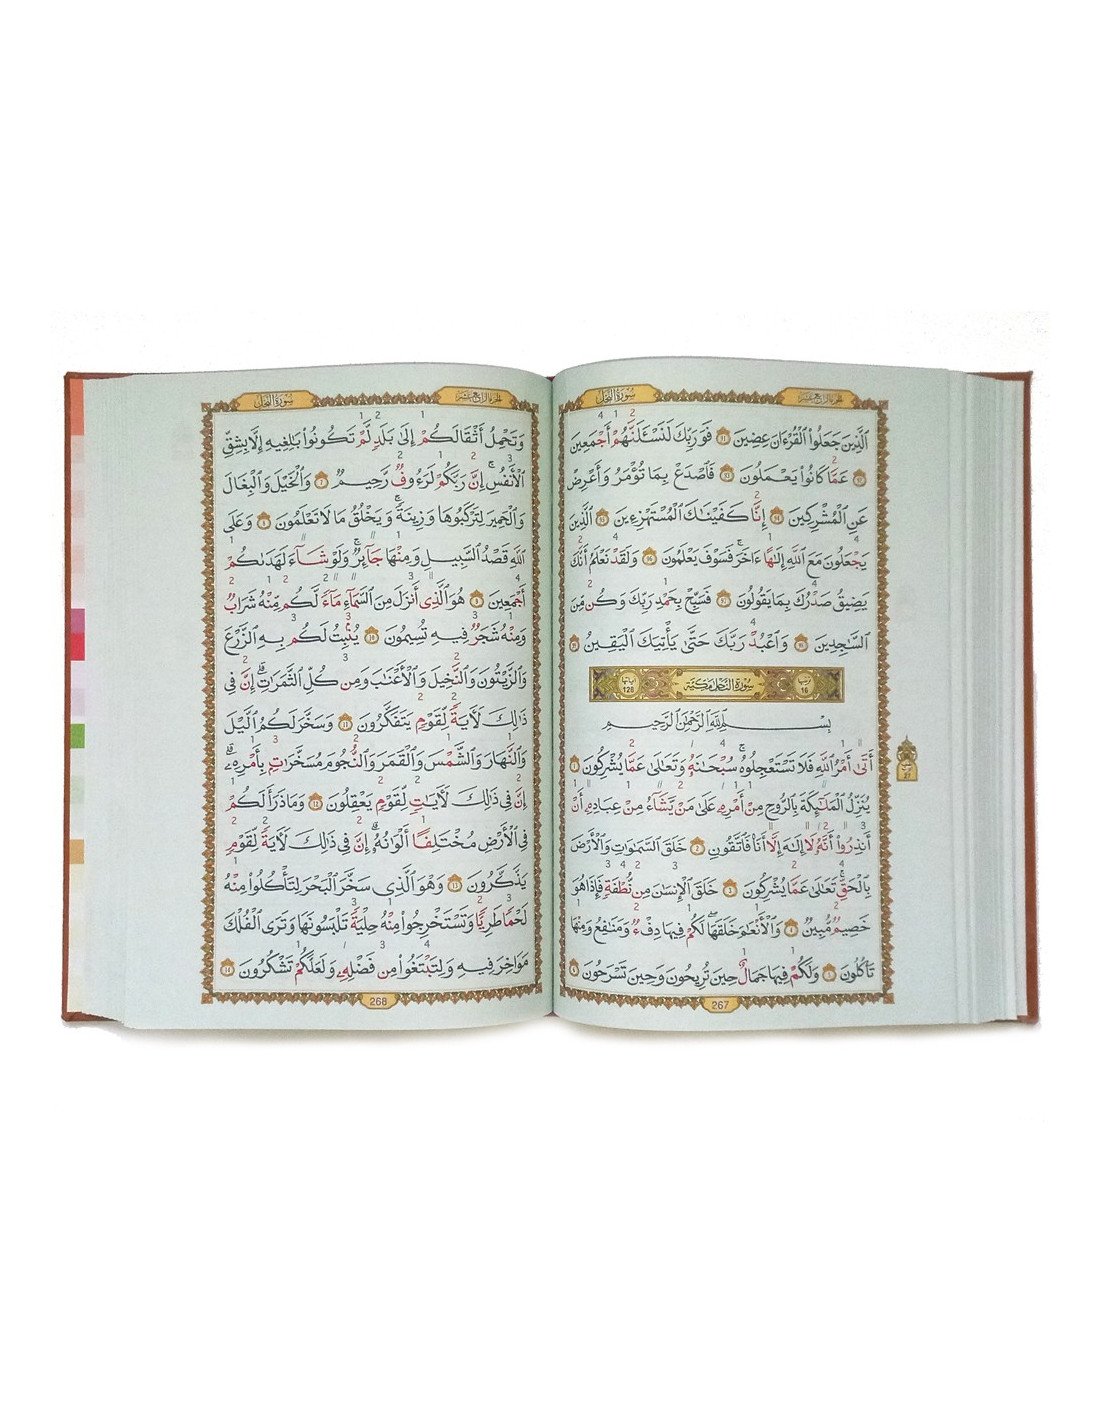 سورة النحل
الجزء الرابع عشر
ٱلَّذِينَ جَعَلُوا۟ ٱلْقُرْءَانَ عِضِينَ ٩١ فَوَرَبِّكَ لَنَسْـَٔلَنَّهُمْ أَجْمَعِينَ
٩٢ عَمَّا كَانُوا۟ يَعْمَلُونَ ٩٣ فَٱصْدَعْ بِمَا تُؤْمَرُ وَأَعْرِضْ
عَنِ ٱلْمُشْرِكِينَ ٩٤ إِنَّا كَفَيْنَـٰكَ ٱلْمُسْتَهْزِءِينَ ٩٥ ٱلَّذِينَ
يَجْعَلُونَ مَعَ ٱللَّهِ إِلَـٰهًا ءَاخَرَ ۚ فَسَوْفَ يَعْلَمُونَ ٩٦ وَلَقَدْ نَعْلَمُ أَنَّكَ
يَضِيقُ صَدْرُكَ بِمَا يَقُولُونَ ٩٧ فَسَبِّحْ بِحَمْدِ رَبِّكَ وَكُن مِّنَ
ٱلسَّـٰجِدِينَ ٩٨ وَٱعْبُدْ رَبَّكَ حَتَّىٰ يَأْتِيَكَ ٱلْيَقِينُ ٩٩
ترتيبها 16 سورة النحل مكية آياتها 128
بِسْمِ ٱللَّهِ ٱلرَّحْمَـٰنِ ٱلرَّحِيمِ
أَتَىٰٓ أَمْرُ ٱللَّهِ فَلَا تَسْتَعْجِلُوهُ ۚ سُبْحَـٰنَهُۥ وَتَعَـٰلَىٰ عَمَّا يُشْرِكُونَ ١
يُنَزِّلُ ٱلْمَلَـٰٓئِكَةَ بِٱلرُّوحِ مِنْ أَمْرِهِۦ عَلَىٰ مَن يَشَآءُ مِنْ عِبَادِهِۦٓ أَنْ
أَنذِرُوٓا۟ أَنَّهُۥ لَآ إِلَـٰهَ إِلَّآ أَنَا۠ فَٱتَّقُونِ ٢ خَلَقَ ٱلسَّمَـٰوَٰتِ وَٱلْأَرْضَ
بِٱلْحَقِّ ۚ تَعَـٰلَىٰ عَمَّا يُشْرِكُونَ ٣ خَلَقَ ٱلْإِنسَـٰنَ مِن نُّطْفَةٍ فَإِذَا هُوَ
خَصِيمٌ مُّبِينٌ ٤ وَٱلْأَنْعَـٰمَ خَلَقَهَا ۗ لَكُمْ فِيهَا دِفْءٌ وَمَنَـٰفِعُ وَمِنْهَا
تَأْكُلُونَ ٥ وَلَكُمْ فِيهَا جَمَالٌ حِينَ تُرِيحُونَ وَحِينَ تَسْرَحُونَ ٦
267
27
سورة النحل
الجزء الرابع عشر
وَتَحْمِلُ أَثْقَالَكُمْ إِلَىٰ بَلَدٍ لَّمْ تَكُونُوا۟ بَـٰلِغِيهِ إِلَّا بِشِقِّ
ٱلْأَنفُسِ ۚ إِنَّ رَبَّكُمْ لَرَءُوفٌ رَّحِيمٌ ٧ وَٱلْخَيْلَ وَٱلْبِغَالَ
وَٱلْحَمِيرَ لِتَرْكَبُوهَا وَزِينَةً ۚ وَيَخْلُقُ مَا لَا تَعْلَمُونَ ٨ وَعَلَى
ٱللَّهِ قَصْدُ ٱلسَّبِيلِ وَمِنْهَا جَآئِرٌ ۚ وَلَوْ شَآءَ لَهَدَىٰكُمْ
أَجْمَعِينَ ٩ هُوَ ٱلَّذِىٓ أَنزَلَ مِنَ ٱلسَّمَآءِ مَآءً ۖ لَّكُم مِّنْهُ شَرَابٌ
وَمِنْهُ شَجَرٌ فِيهِ تُسِيمُونَ ١٠ يُنۢبِتُ لَكُم بِهِ ٱلزَّرْعَ
وَٱلزَّيْتُونَ وَٱلنَّخِيلَ وَٱلْأَعْنَـٰبَ وَمِن كُلِّ ٱلثَّمَرَٰتِ ۗ إِنَّ فِى
ذَٰلِكَ لَـَٔايَةً لِّقَوْمٍ يَتَفَكَّرُونَ ١١ وَسَخَّرَ لَكُمُ ٱلَّيْلَ
وَٱلنَّهَارَ وَٱلشَّمْسَ وَٱلْقَمَرَ ۖ وَٱلنُّجُومُ مُسَخَّرَٰتٌۢ بِأَمْرِهِۦٓ ۗ
إِنَّ فِى ذَٰلِكَ لَـَٔايَـٰتٍ لِّقَوْمٍ يَعْقِلُونَ ١٢ وَمَا ذَرَأَ لَكُمْ
فِى ٱلْأَرْضِ مُخْتَلِفًا أَلْوَٰنُهُۥٓ ۗ إِنَّ فِى ذَٰلِكَ لَـَٔايَةً لِّقَوْمٍ
يَذَّكَّرُونَ ١٣ وَهُوَ ٱلَّذِى سَخَّرَ ٱلْبَحْرَ لِتَأْكُلُوا۟ مِنْهُ
لَحْمًا طَرِيًّا وَتَسْتَخْرِجُوا۟ مِنْهُ حِلْيَةً تَلْبَسُونَهَا وَتَرَى ٱلْفُلْكَ
مَوَاخِرَ فِيهِ وَلِتَبْتَغُوا۟ مِن فَضْلِهِۦ وَلَعَلَّكُمْ تَشْكُرُونَ ١٤
268